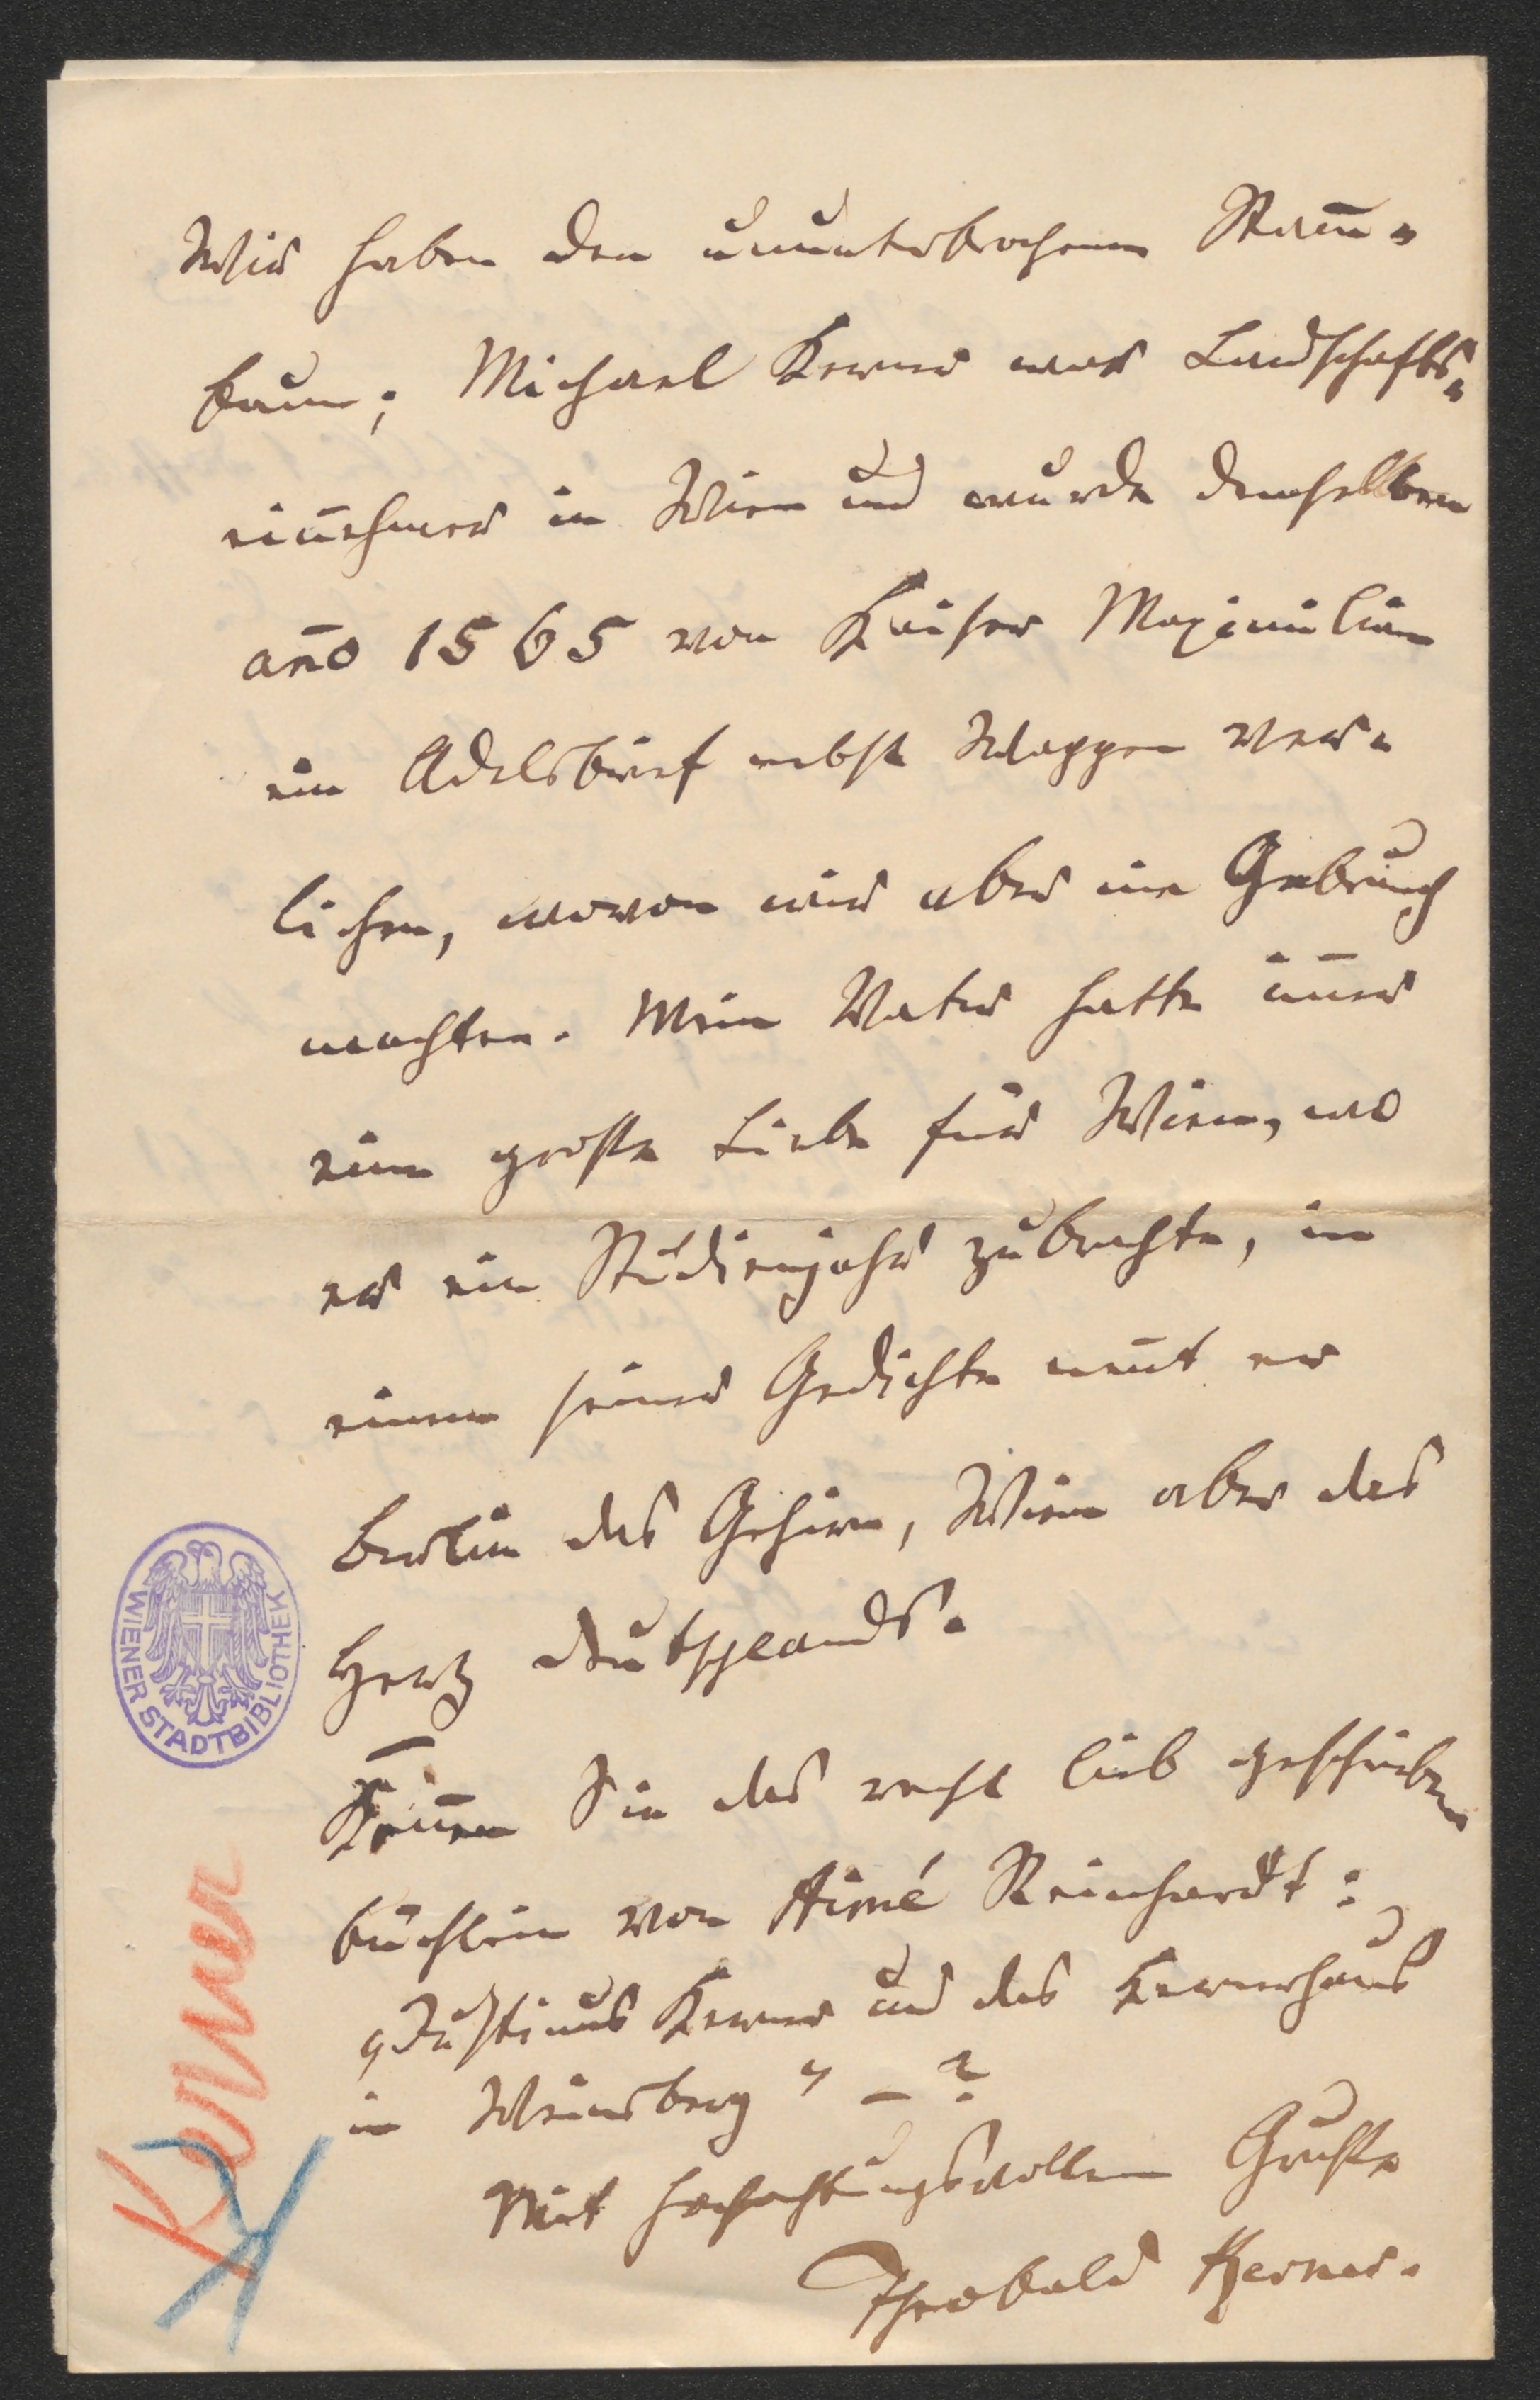 Wir haben den ununterbrochenen Stam̄-
baum; Michael Kerner war Landschafts-
ein̄ehmer in Wien und wurde demselben
an̄o 1565 von Kaiser Maximilian
ein Adelsbrief nebst Wappen ver-
liehen, wovon wir aber nie Gebrauch
machten. Mein Vater hatte im̄er
eine große Liebe für Wien, wo
er ein Studienjahr zubrachte, in
einem seiner Gedichte nen̄t er
Berlin das Gehirn, Wien aber das
Herz Deutschlands.
Ken̄en Sie das recht lieb geschriebene
Büchlein von Aimé Reinhardt:
„Justinus Kerner und das Kernerhaus
in Weinsberg" – ?
Mit hochachtungsvollem Gruße
Theobald Kerner.
WIENER STADTBIBLIOTHEK
Kerner
K